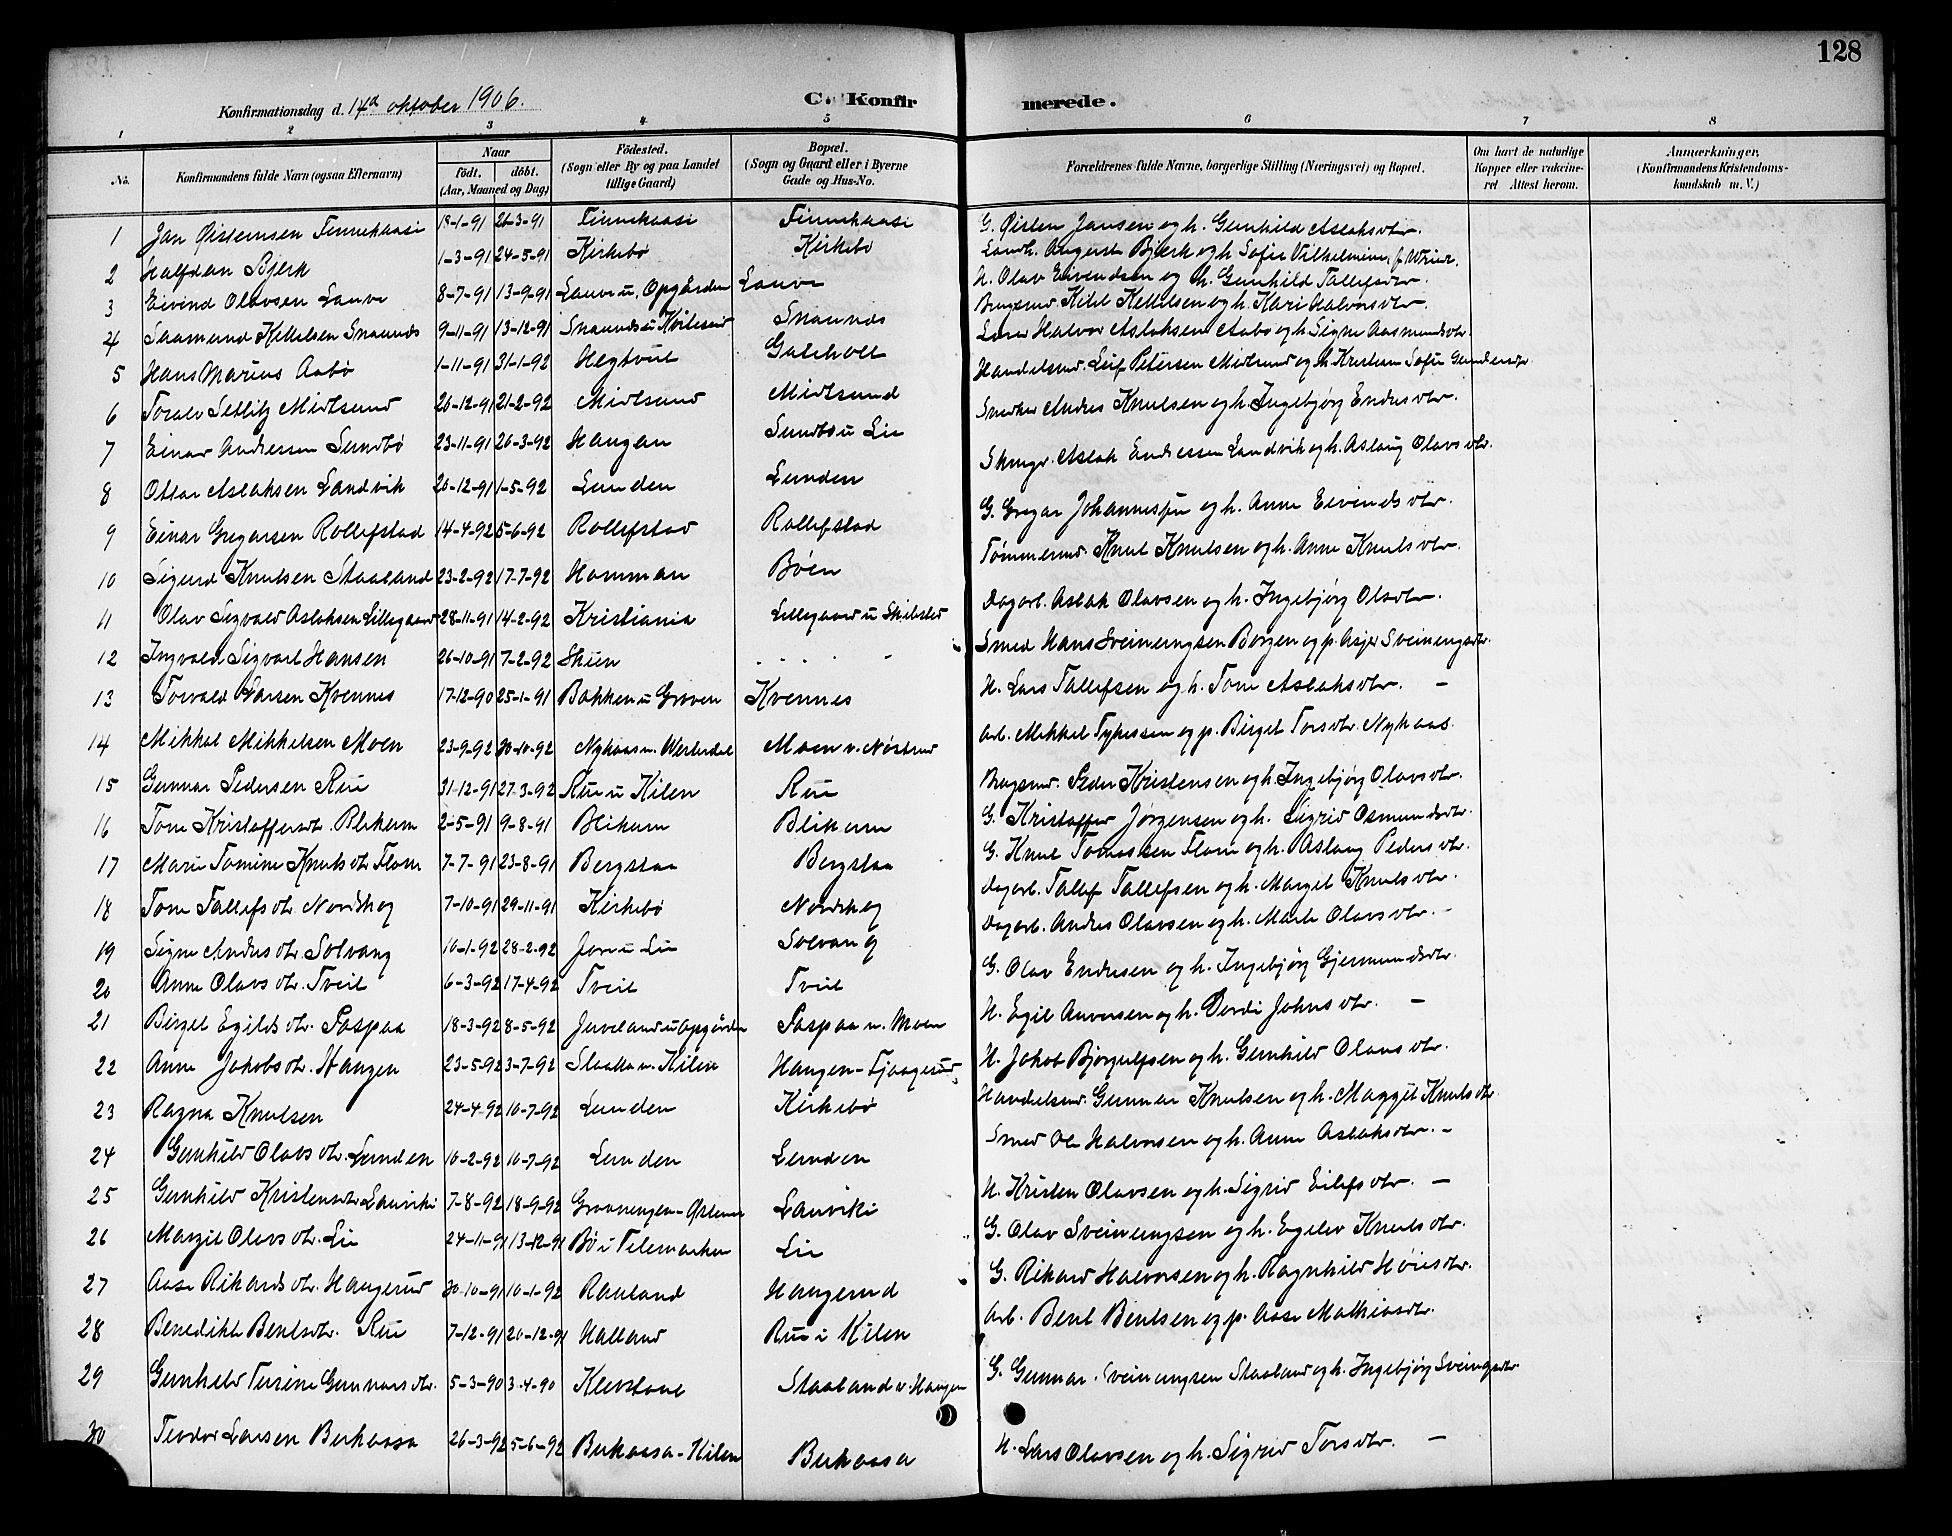 128
Konfirmationsdag d. 14d oktober 1906. C. Konfirmerede.
1 2 3 4 5 6 7 8
No. Konfirmandens fulde Navn (ogsaa Efternavn) Naar født. døbt. (Aar, Maaned og Dag) Fødested. (Sogn eller By og paa Landet tillige Gaard) Bopæl. (Sogn og Gaard eller i Byerne Gade og Hus-No. Forældrenes fulde Navne, borgerlige Stilling (Næringsvei) og Bopæl. Om havt de naturlige Kopper eller vakcineret Attest herom. Anmærkninger, (Konfirmandens Kristendomskundskab m. V.)
1 Jan Øisteinsen Finnekaasi 18-1-91 26-3-91 Finnekaasi Finnekaasi G. Øisten Jansen og h. Gunhild Aslaksdtr.
2 Halfdan Bjerk 1-3-91 24-5-91 Kirkebø Kirkebø Landh. August Bjerk og h. Sofie Vilhelmine f.
3 Eivind Olavsen Lauve 8-7-91 13-9-91 Lauve u. Opgården Lauve H. Olav Eivendsen og h. Gunhild Tallefsdtr.
4 Saamund Kittelsen Snaunds 9-11-91 13-12-91 Snaunds u Snaunds Brugsmd Kitel Kittelsen og h. Kari Halvorsdtr.
5 Hans Marius Aabø 1-11-91 31-1-92 Hegtveit Gateholt Lærer Halvor Aslaksen Aabø og h. Signe Aasmundsdtr.
6 Toralv Setlitz Midtsund 26-12-91 21-2-92 Midtsund Midtsund Handelsmd. Leif Petersen Midtsund og h. Kristian Sofie
7 Einar Andersen Sundbø 23-11-91 20-3-92 Haugan Sundbø u Lie Snedker Andres Knutsen og h. Ingebjørg Endresdtr.
8 Ottar Aslaksen Landvik 20-12-91 1-5-92 Lunden Lunden Skrægr. Aslak Endresen Landvik og h. Aslaug Olavsdtr.
9 Einar Gregarsen Rollefstad 14-4-92 5-6-92 Rollefstad Rollefstad G. Gregar Johannessen og h. Anne Eivindsdtr.
10 Sigurd Knutsen Staaland 23-2-92 17-7-92 Homman Bøen Tømmermd. Knut Knutsen og h. Anne Knutsdtr.
11 Olav Sigvald Aslaksen Lillegaard 28-11-91 14-2-92 Kristiania Lillegaard u Skibsled Dagarb. Aslak Olavsen og h. Ingebjørg Olsdtr.
12 Ingvald Sigvart Hansen 26-10-91 7-2-92 Skien . . . . . - Smed Hans Sveinungsen Borgen og p. Asjer Sveinungsdtr.
13 Torvald Larsen Kvennes 17-12-90 25-1-91 Bakken u Groven Kvennes H. Lars Tallefsen og h. Tone Aslaksdtr. -
14 Mikkal Mikkelsen Moen 23-9-92 30-10-92 Nykaas u. Vesterdal Moen u. Nøstrud Arb. Mikkel Tykessen og p. Birgit Torsdtr. Nykaas
15 Gunnar Pedersen Rui 31-12-91 27-3-92 Rui u Kilen Rui Brugsmd. Peder Kristensen og h. Ingebjørg Olavsdtr.
16 Tone Kristoffersdt. Blekum 2-5-91 9-8-91 Blikum Blikum G. Kristoffer Jørgensen og h. Sigrid Osmundsdtr.
17 Marie Tomine Knutsdtr Flom 7-7-91 23-8-91 Bergstaa Bergstaa G. Knut Tomassen Flom og h. Aslaug Pedersdtr.
18 Tone Tallefsdtr Nordskog 7-10-91 29-11-91 Kirkebø Nordskog Dagarb. Tallef Tallefsen og h. Margit Knutsdtr.
19 Signe Andersdtr. Solvang 10-1-92 28-2-92 Jore u Lie Solvang Dagarb. Andres Olavsen og h. Marte Olavsdtr. -
20 Anne Olavsdtr. Tveit 6-3-92 17-4-92 Tveit Tveit G. Olav Endresen og h. Ingebjørg Gjermundsdtr.
21 Birgit Egildsdtr. Saspaa 18-3-92 8-5-92 Juveland u Opgården Saspaa u. Moen H. Egil Auversen og h. Dordi Johnsdtr. -
22 Anne Jakobsdtr. Haugen 23-5-92 3-7-92 Slaatta u. Kilen Haugen - H. Jakob Bjørgulfsen og h. Gunhild Olavsdtr.
23 Ragna Knutsen 24-4-92 10-7-92 Lunden Kirkebø Handelsmd. Gunnar Knutsen og h. Maggit Knutsdtr.
24 Gunhild Olavsdtr. Lunden 10-2-92 10-7-92 Lunden Lunden Smed Ole Halvorsen og h. Anne Aslaksdtr. -
25 Gunhild Kristensdtr Lauviki 7-8-92 18-9-92 Groveengen - Lauviki H. Kristen Olavsen og h. Sigrid Eilefsdtr. -
26 Margit Olavsdtr. Lie 24-11-91 13-12-91 Bø i Telemarken Lie G. Olav Sveinungsen og h. Egelev Knutsdtr.
27 Aase Rikardsdtr. Haugerud 30-10-91 10-1-92 Rauland Haugerud G. Rikard Halvorsen og h. Ragnhild Høiesdtr.
28 Benedikte Bentsdtr. Rui 7-12-91 20-12-91 Halland Rui i Kilen Arb. Bent Bentsen og p. Aase Mathiasdtr.
29 Gunhild Turine Gunnarsdtr. 5-3-90 3-4-90 Klevstaul Staaland u. Haugen G. Gunnar Sveinungsen Staaland og h. Ingebjørg Sveingsdtr.
30 Teodor Larsen Berkaasa 26-3-92 5-6-92 Berkaasa - Kilen Berkaasa H. Lars Olavsen og h. Sigrid Torsdtr. -